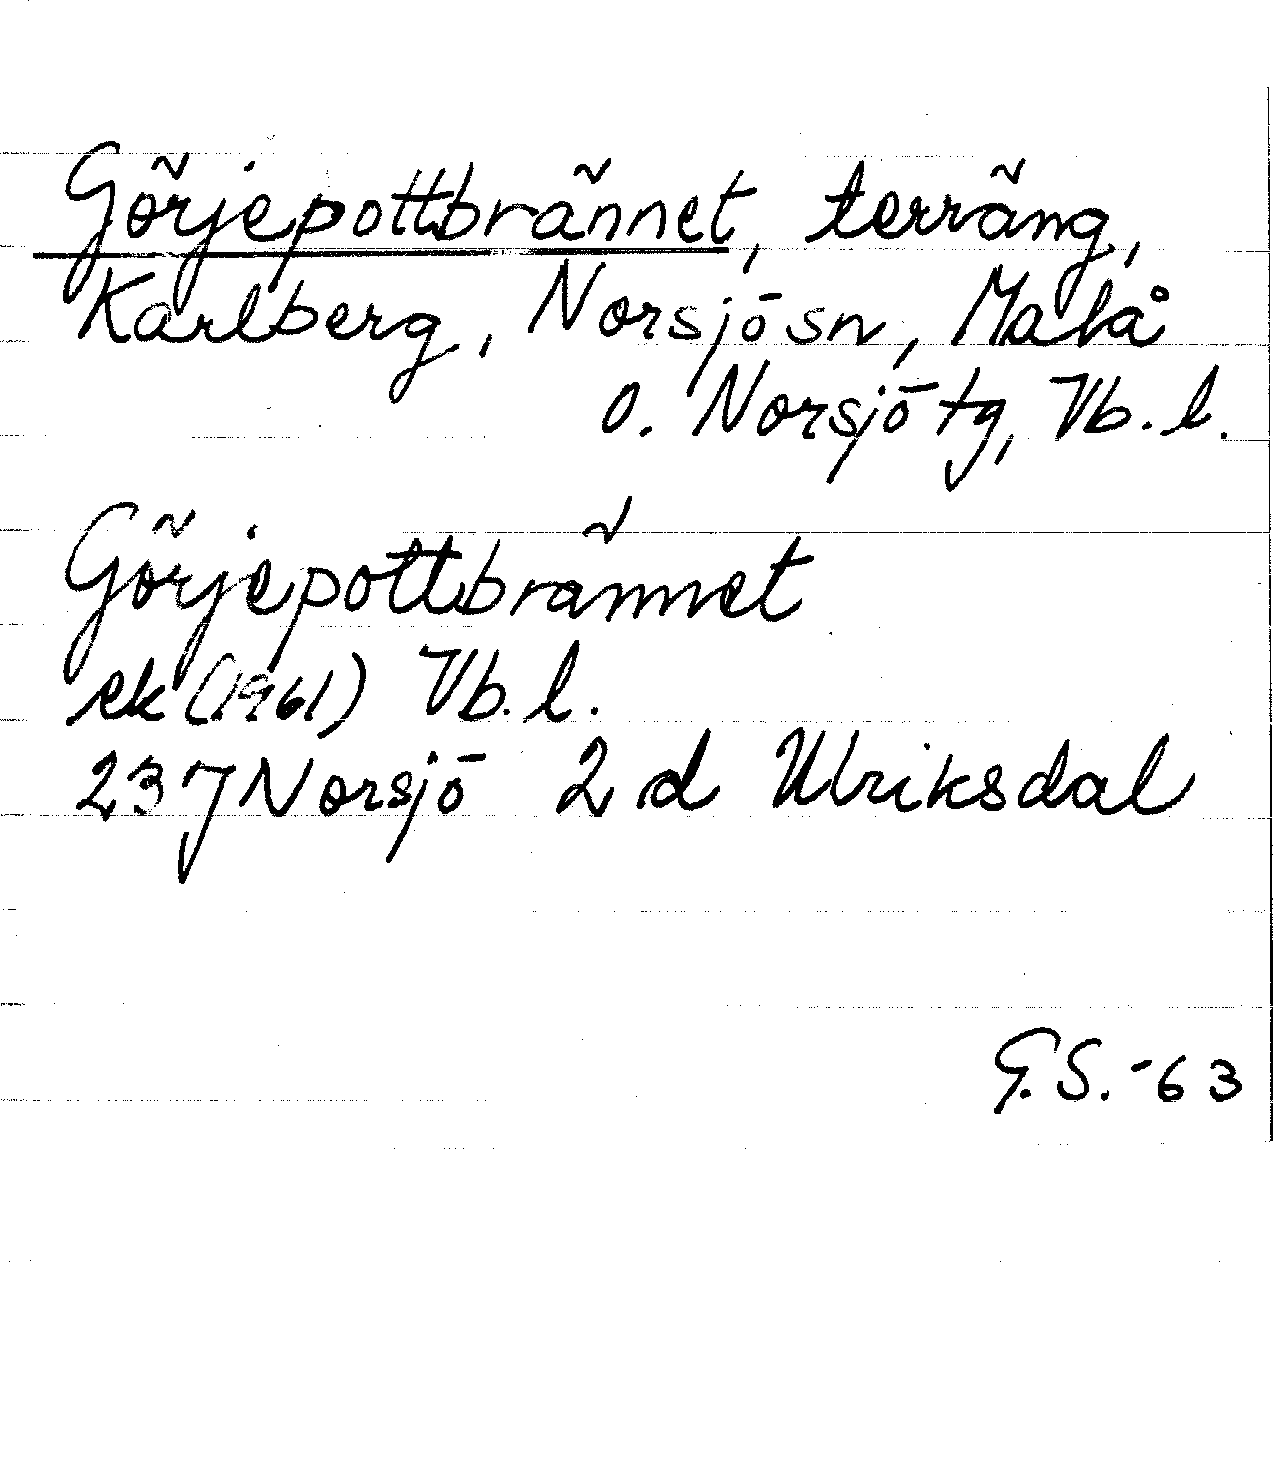 Görjepottbrännet, terräng,
Karlberg, Norsjö sn, Malå
o. Norsjö tg, Vb. l.
Görjepottbrännet
ek (1961) Vb. l.
237 Norsjö 2 d Ulriksdal
G.S. -63